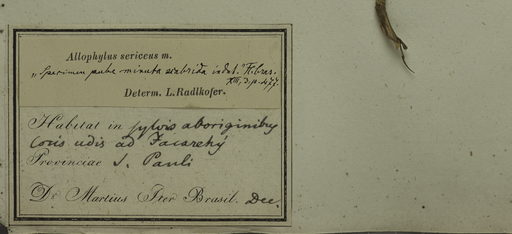 Allophylus sericeus m.
„Specimen pube minuta scabrida indut." Fl. bras.
XIII, 3, p. 477.
Determ. L. Radlkofer.
Habitat in sylvis aboriginibus
locis udis ad Jacarehy
Provinciae S. Pauli
Dr. Martius Iter Brasil. Dec.